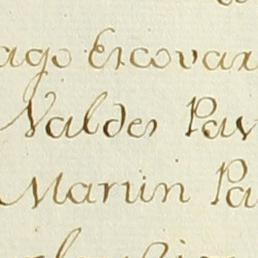 ago Escovar
Valdes Pav
Martin Pa